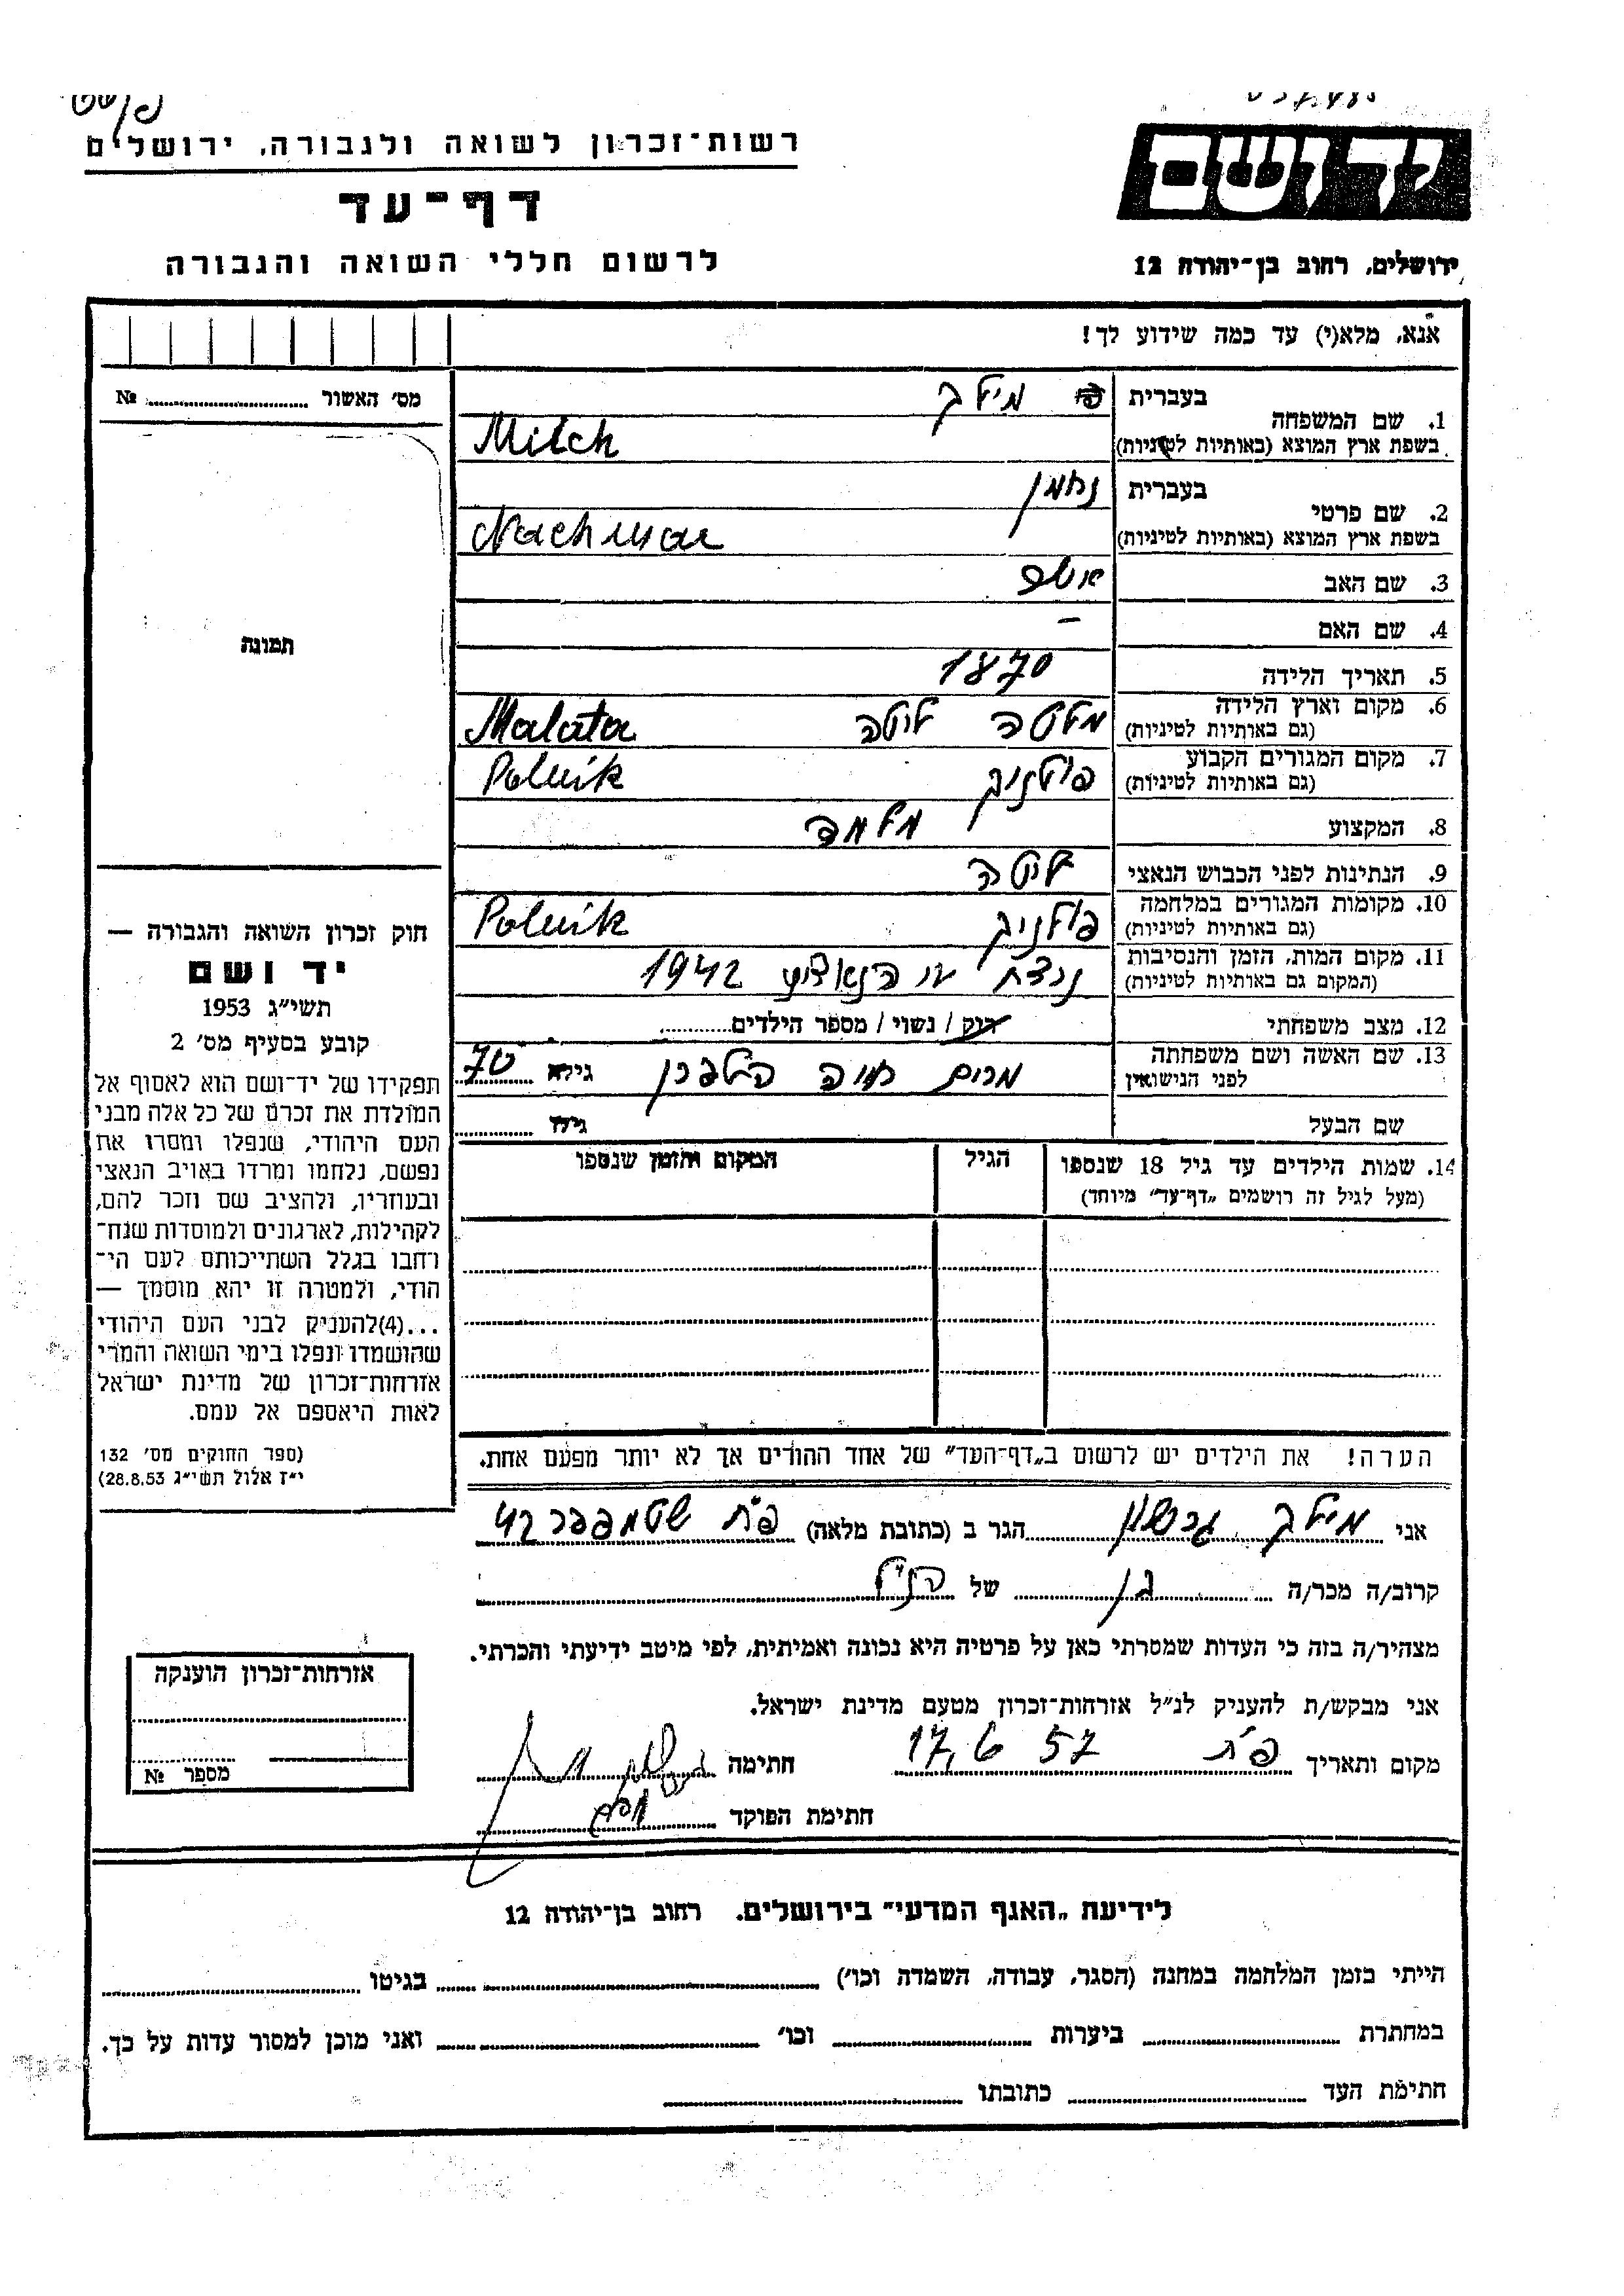 יד ושם
ירושלים, רחוב בן־יהודה 12
רשות־זכרון לשואה ולגבורה, ירושלים
דף־עד
לרשום חללי השואה והגבורה
אנא, מלא(י) עד כמה שידוע לך!
מס׳ האשור № ..........
תמונה
1. שם המשפחה
בעברית מילך
בשפת ארץ המוצא (באותיות לטיניות) Milch
2. שם פרטי
בעברית נחמן
בשפת ארץ המוצא (באותיות לטיניות) Nachman
3. שם האב אשר
4. שם האם –
5. תאריך הלידה 1870
6. מקום וארץ הלידה
(גם באותיות לטיניות) מלטה ליטה Malata
7. מקום המגורים הקבוע
(גם באותיות לטיניות) פולניק Polnik
8. המקצוע מלמד
9. הנתינות לפני הכבוש הנאצי ליטה
10. מקומות המגורים במלחמה
(גם באותיות לטיניות) פולניק Polnik
11. מקום המות, הזמן והנסיבות
(המקום גם באותיות לטיניות) נרצח ע״י הנאצים 1942
12. מצב משפחתי רוק / נשוי / מספר הילדים ..........
13. שם האשה ושם משפחתה
לפני הנישואין מרים חיה הילפרין גילה 70
שם הבעל גילו ..........
14. שמות הילדים עד גיל 18 שנספו
(מעל לגיל זה רושמים „דף־עד״ מיוחד)
הגיל
המקום והזמן שנספו
חוק זכרון השואה והגבורה —
יד ושם
תשי״ג 1953
קובע בסעיף מס׳ 2
תפקידו של יד־ושם הוא לאסוף אל
המולדת את זכרם של כל אלה מבני
העם היהודי, שנפלו ומסרו את
נפשם, נלחמו ומרדו באויב הנאצי
ובעוזריו, ולהציב שם וזכר להם,
לקהילות, לארגונים ולמוסדות שנח־
רחבו בגלל השתייכותם לעם הי־
הודי, ולמטרה זו יהא מוסמך —
...(4)להעניק לבני העם היהודי
שהושמדו ונפלו בימי השואה והמרי
אזרחות־זכרון של מדינת ישראל
לאות היאספם אל עמם.
(ספר החוקים מס׳ 132
י״ז אלול תשי״ג 28.8.53)
הערה! את הילדים יש לרשום ב„דף־העד״ של אחד ההורים אך לא יותר מפעם אחת.
אני מילך גרשון הגר ב (כתובת מלאה) פ״ת שטמפפר 42
קרוב/ה מכר/ה בן של הנ״ל
מצהיר/ה בזה כי העדות שמסרתי כאן על פרטיה היא נכונה ואמיתית, לפי מיטב ידיעתי והכרתי.
אני מבקש/ת להעניק לנ״ל אזרחות־זכרון מטעם מדינת ישראל.
מקום ותאריך פ״ת 17.6 57 חתימה
חתימת הפוקד
אזרחות־זכרון הוענקה
מספר №
לידיעת „האגף המדעי״ בירושלים, רחוב בן־יהודה 12
הייתי בזמן המלחמה במחנה (הסגר, עבודה, השמדה וכו׳) .......... בגיטו ..........
במחתרת .......... ביערות .......... וכו׳ .......... ואני מוכן למסור עדות על כך.
חתימת העד .......... כתובתו ..........